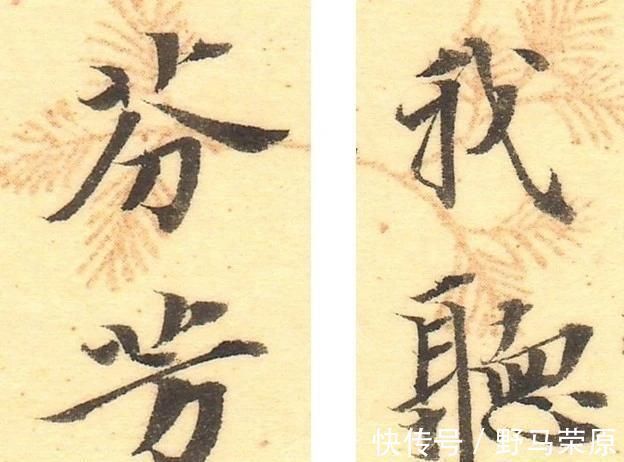 芬芳
我聽
快传号 / 野马荣原